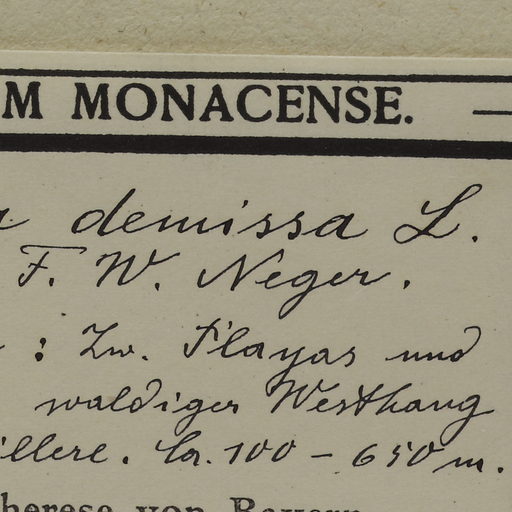 M MONACENSE.
demissa L.
F. W. Neger.
: Zw. Playas und
waldiger Westhang
illere. Ca. 100 – 650 m.
herese von Bayern